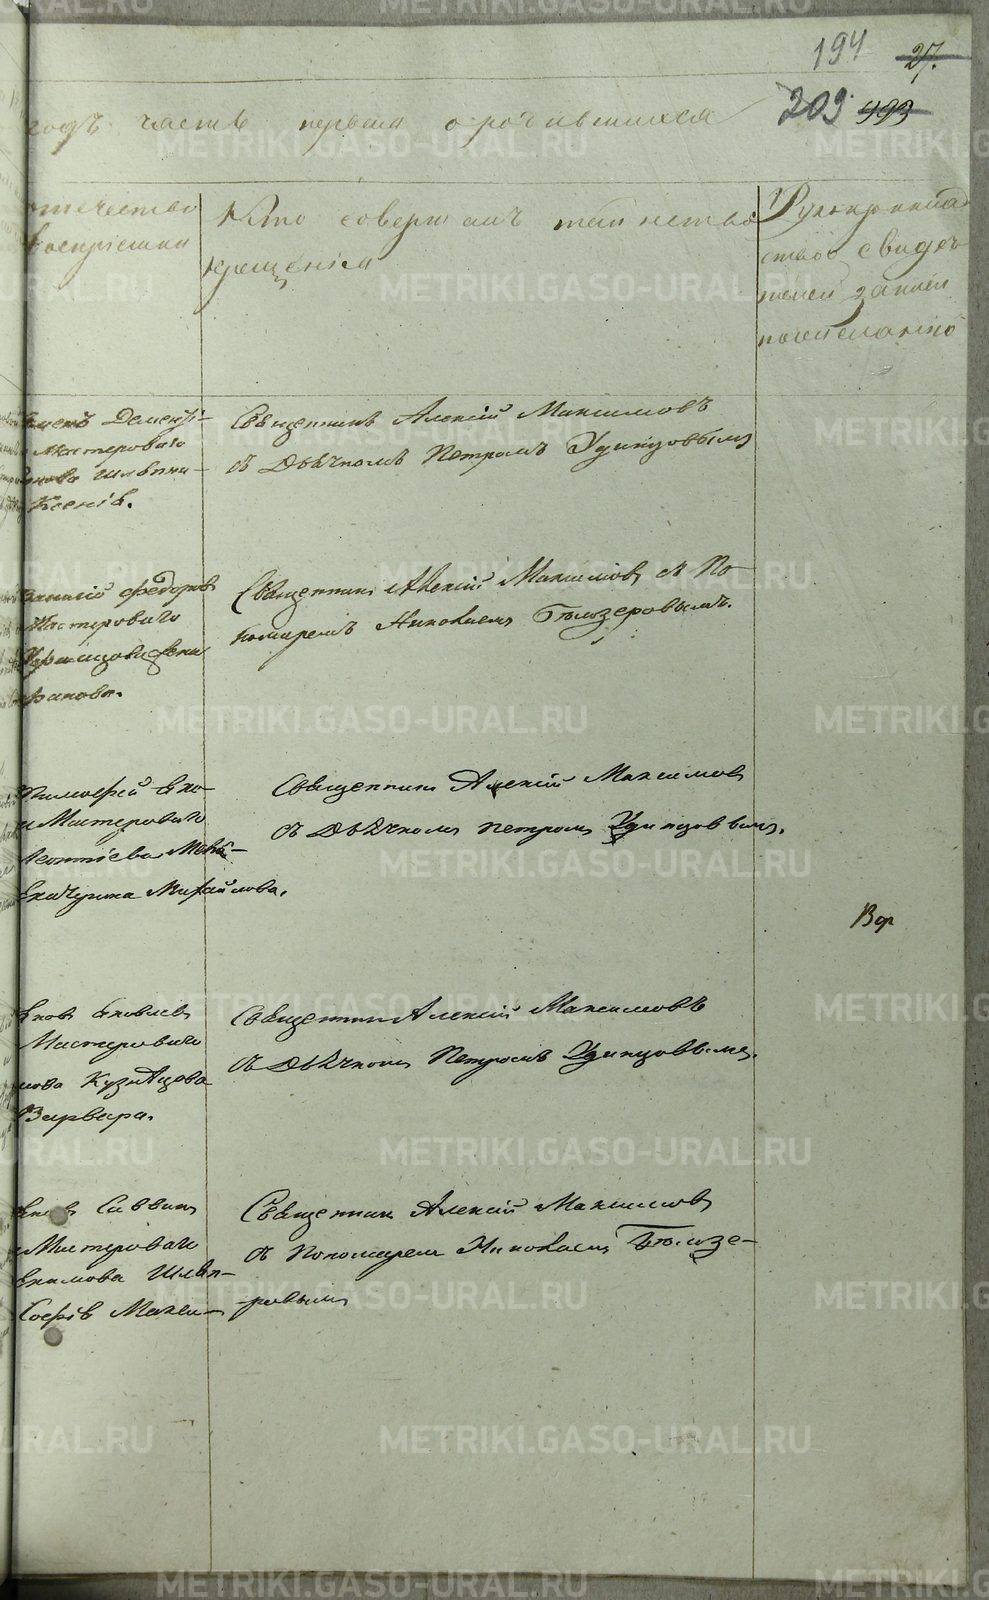 194 27.
209 993
годъ часть первая о родившихся
отчество
воспріемни
Кто совершалъ таинство
крещенія
Рукоприклад
ство свидѣ
телей записи
по желанію
Дементі-
Мастероваго
Ксенія.
Священникъ Алексій Максимовъ
съ Дьячкомъ Петромъ Удинцовымъ
Федоров
Мастероваго
Священникъ Алексій Максимовъ съ По
номаремъ Николаемъ Бѣлозеровымъ.
Тимофей
Мастероваго
Леонтіева
Екатерина Михайлова.
Священникъ Алексій Максимовъ
съ Дьячкомъ Петромъ Удинцовымъ.
Вор
Яковъ Яковлевъ
Мастероваго
Кузнецова
Варвара.
Священникъ Алексій Максимовъ
съ Дьячкомъ Петромъ Удинцовымъ.
Саввинъ
Мастероваго
Екимова
Софія Макси-
Священникъ Алексій Максимовъ
съ Пономаремъ Николаемъ Бѣлозе-
ровымъ
METRIKI.GASO-URAL.RU